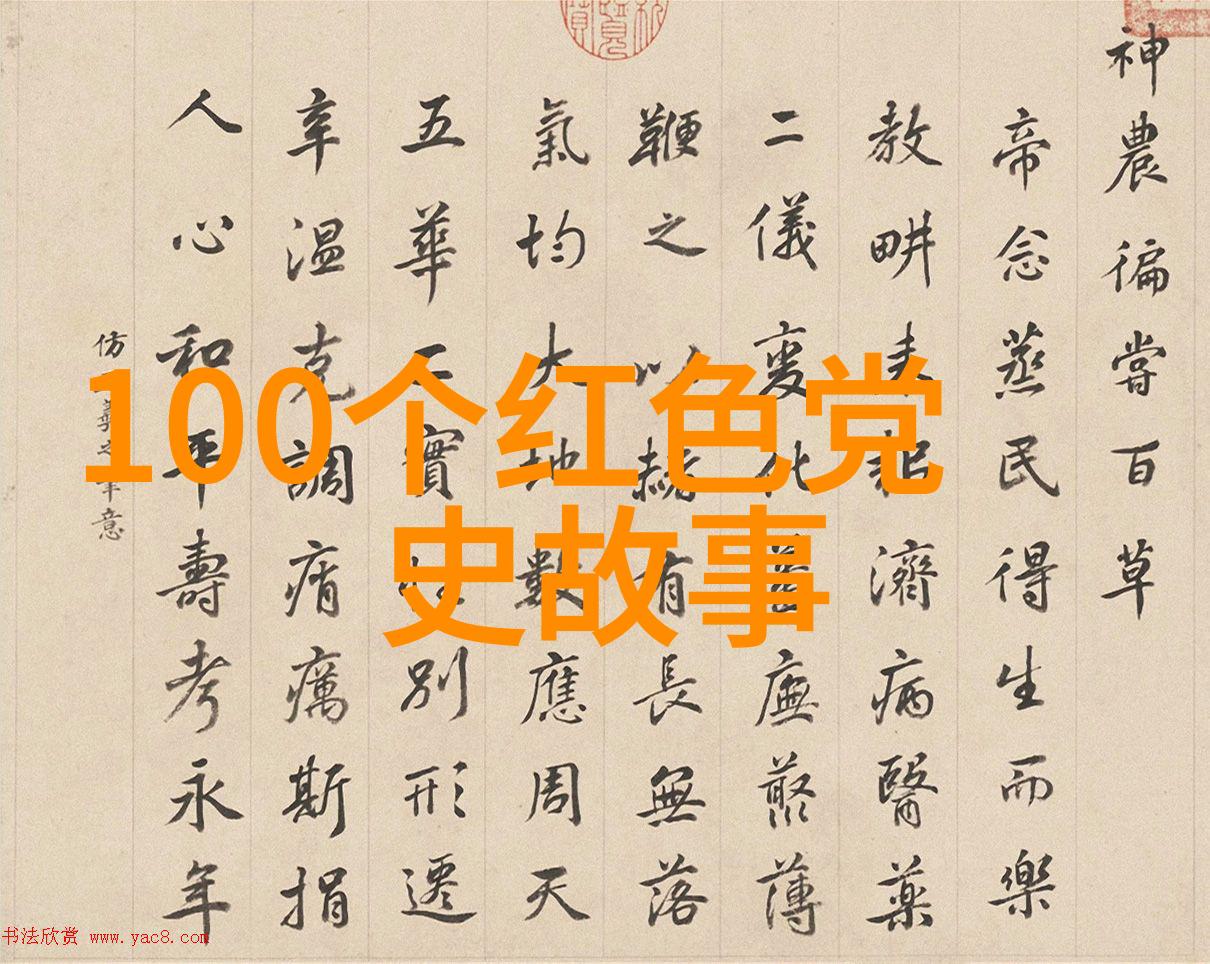 神農徧嘗百草
帝念蒸民得生而樂
教畊耒耜濟病醫藥
二儀變化廡藂薄
鞭之以有長無落
氣均大地數應周天
五華實別形遷
辛温克調痟癘斯捐
人心和平壽考永年
仿羲之筆意
100个红色党
史故事
书法欣赏 www.yac8.com